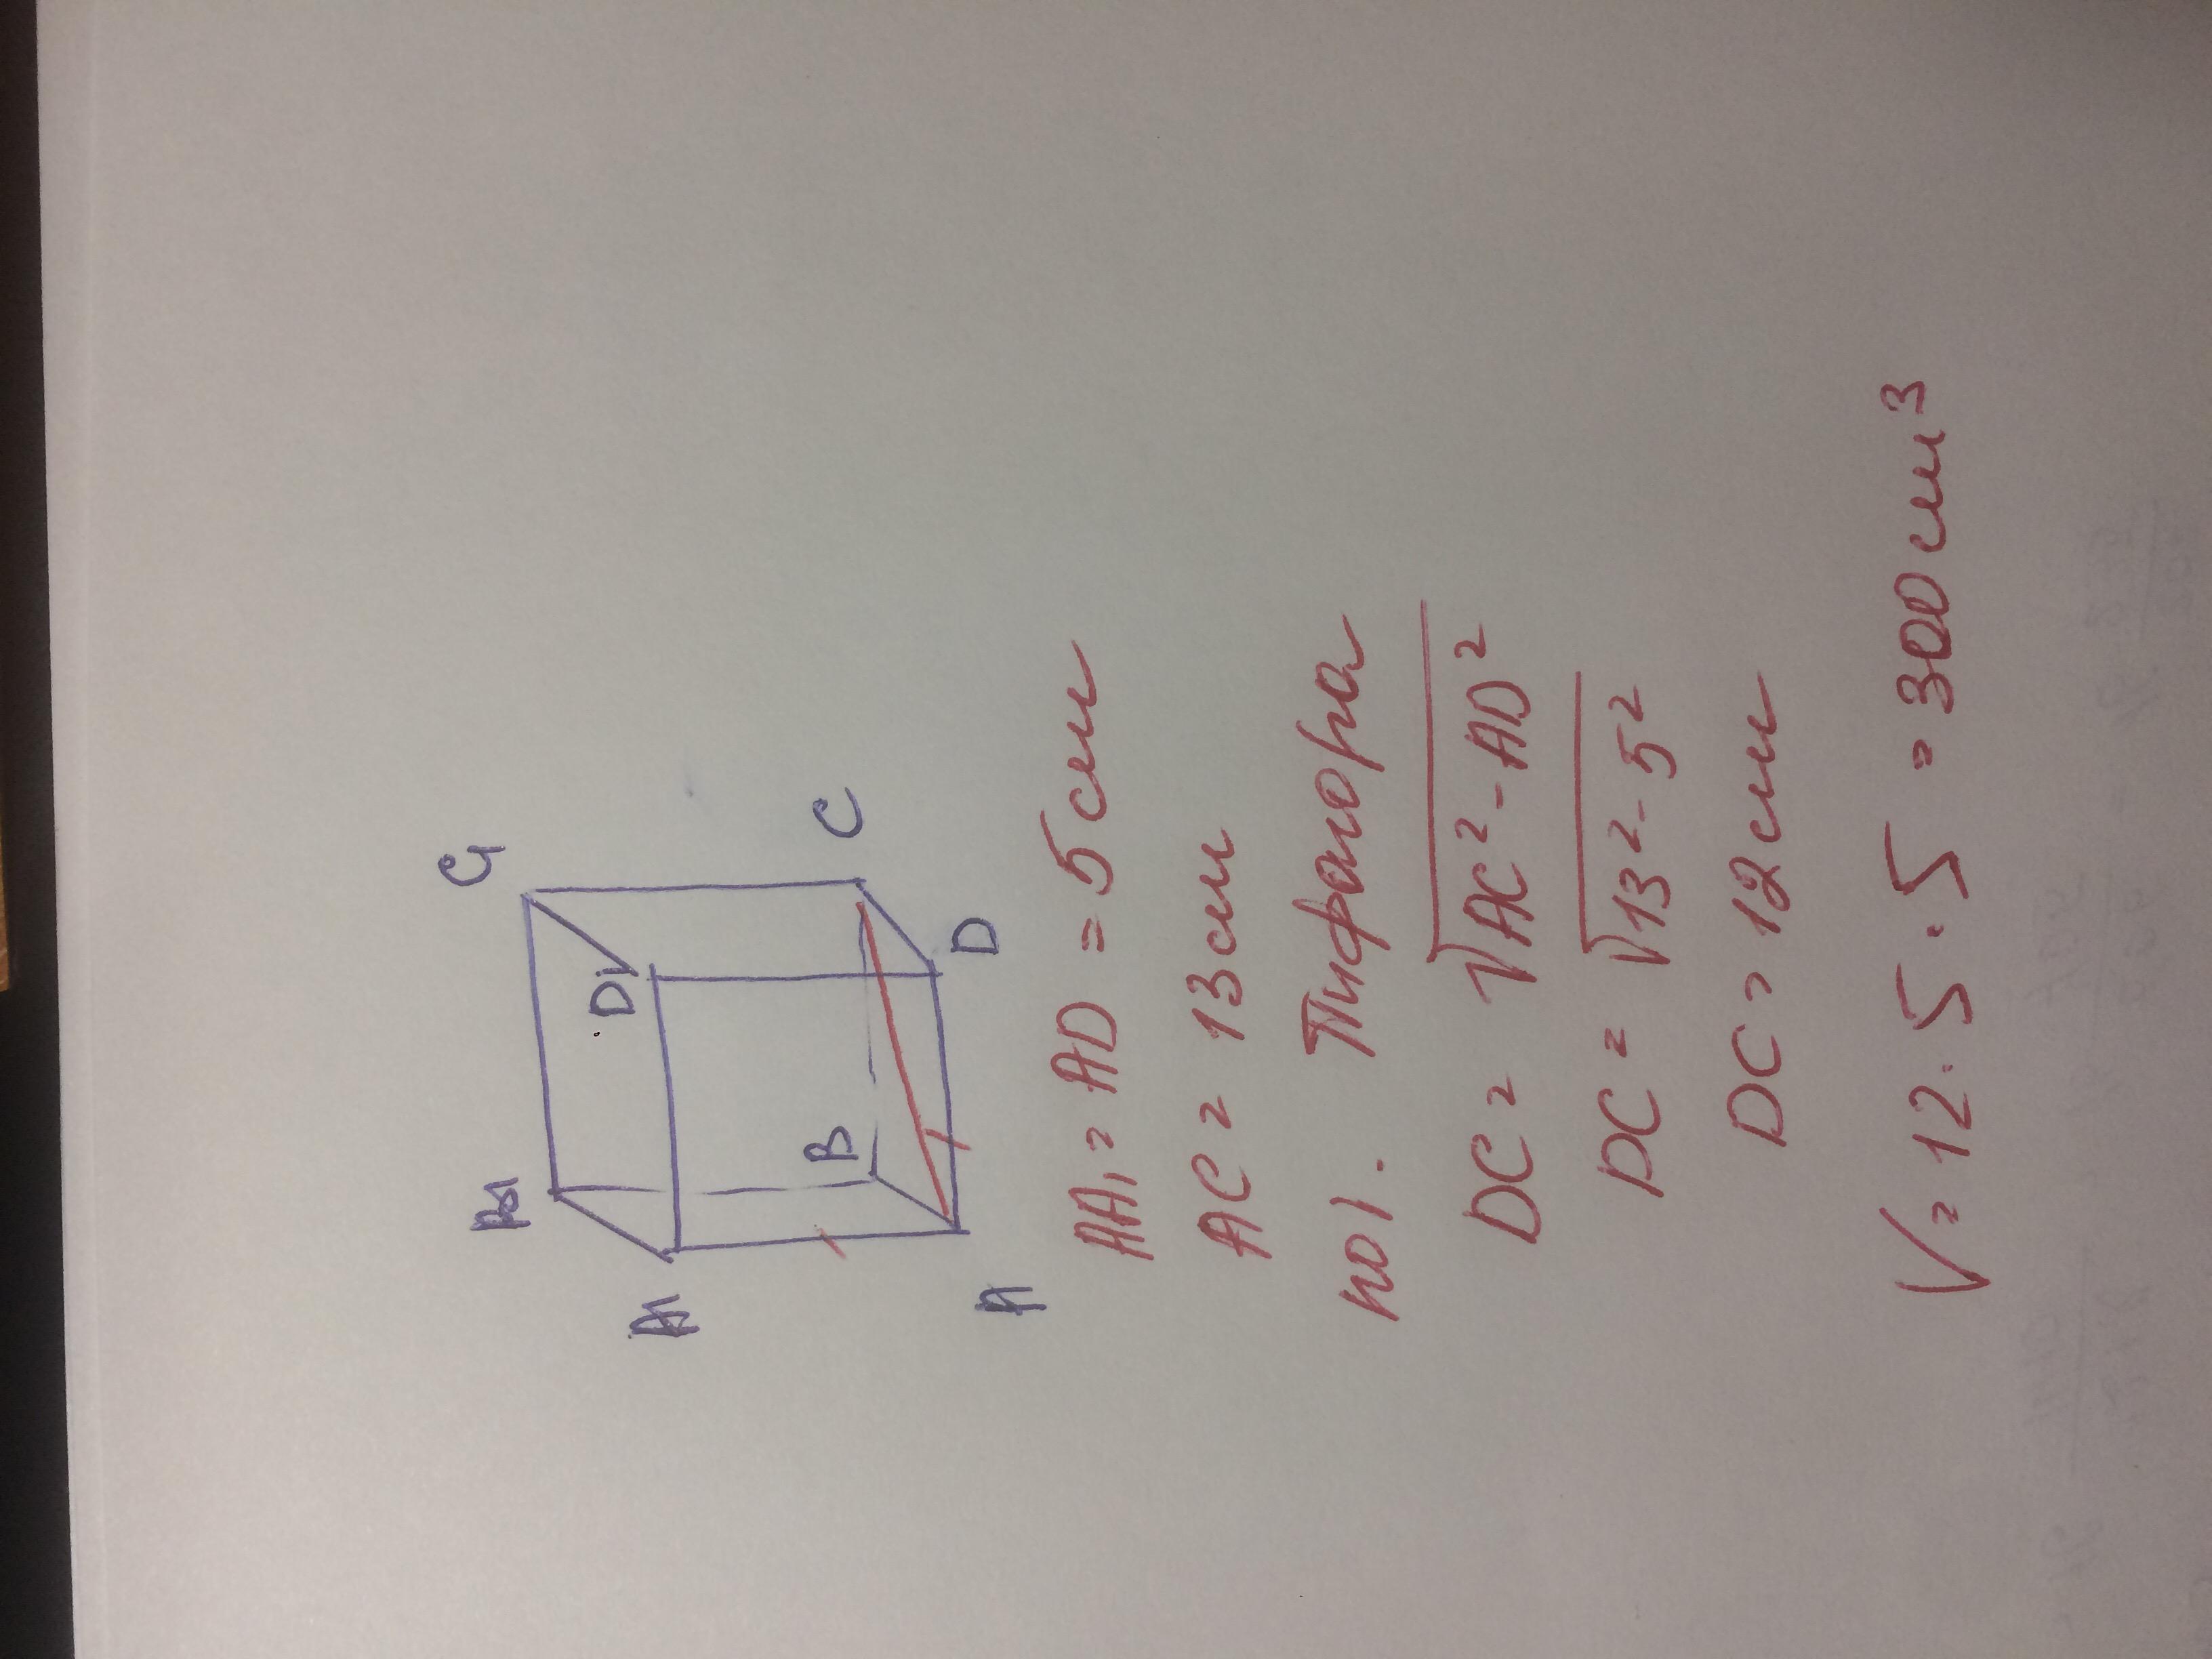 B1 C1
A1 D1
B C
A D
AA₁ = AD = 5 см
AC = 13 см
по т. Пифагора
DC = √AC² - AD²
DC = √13² - 5²
DC = 12 см
V = 12 · 5 · 5 = 300 см³